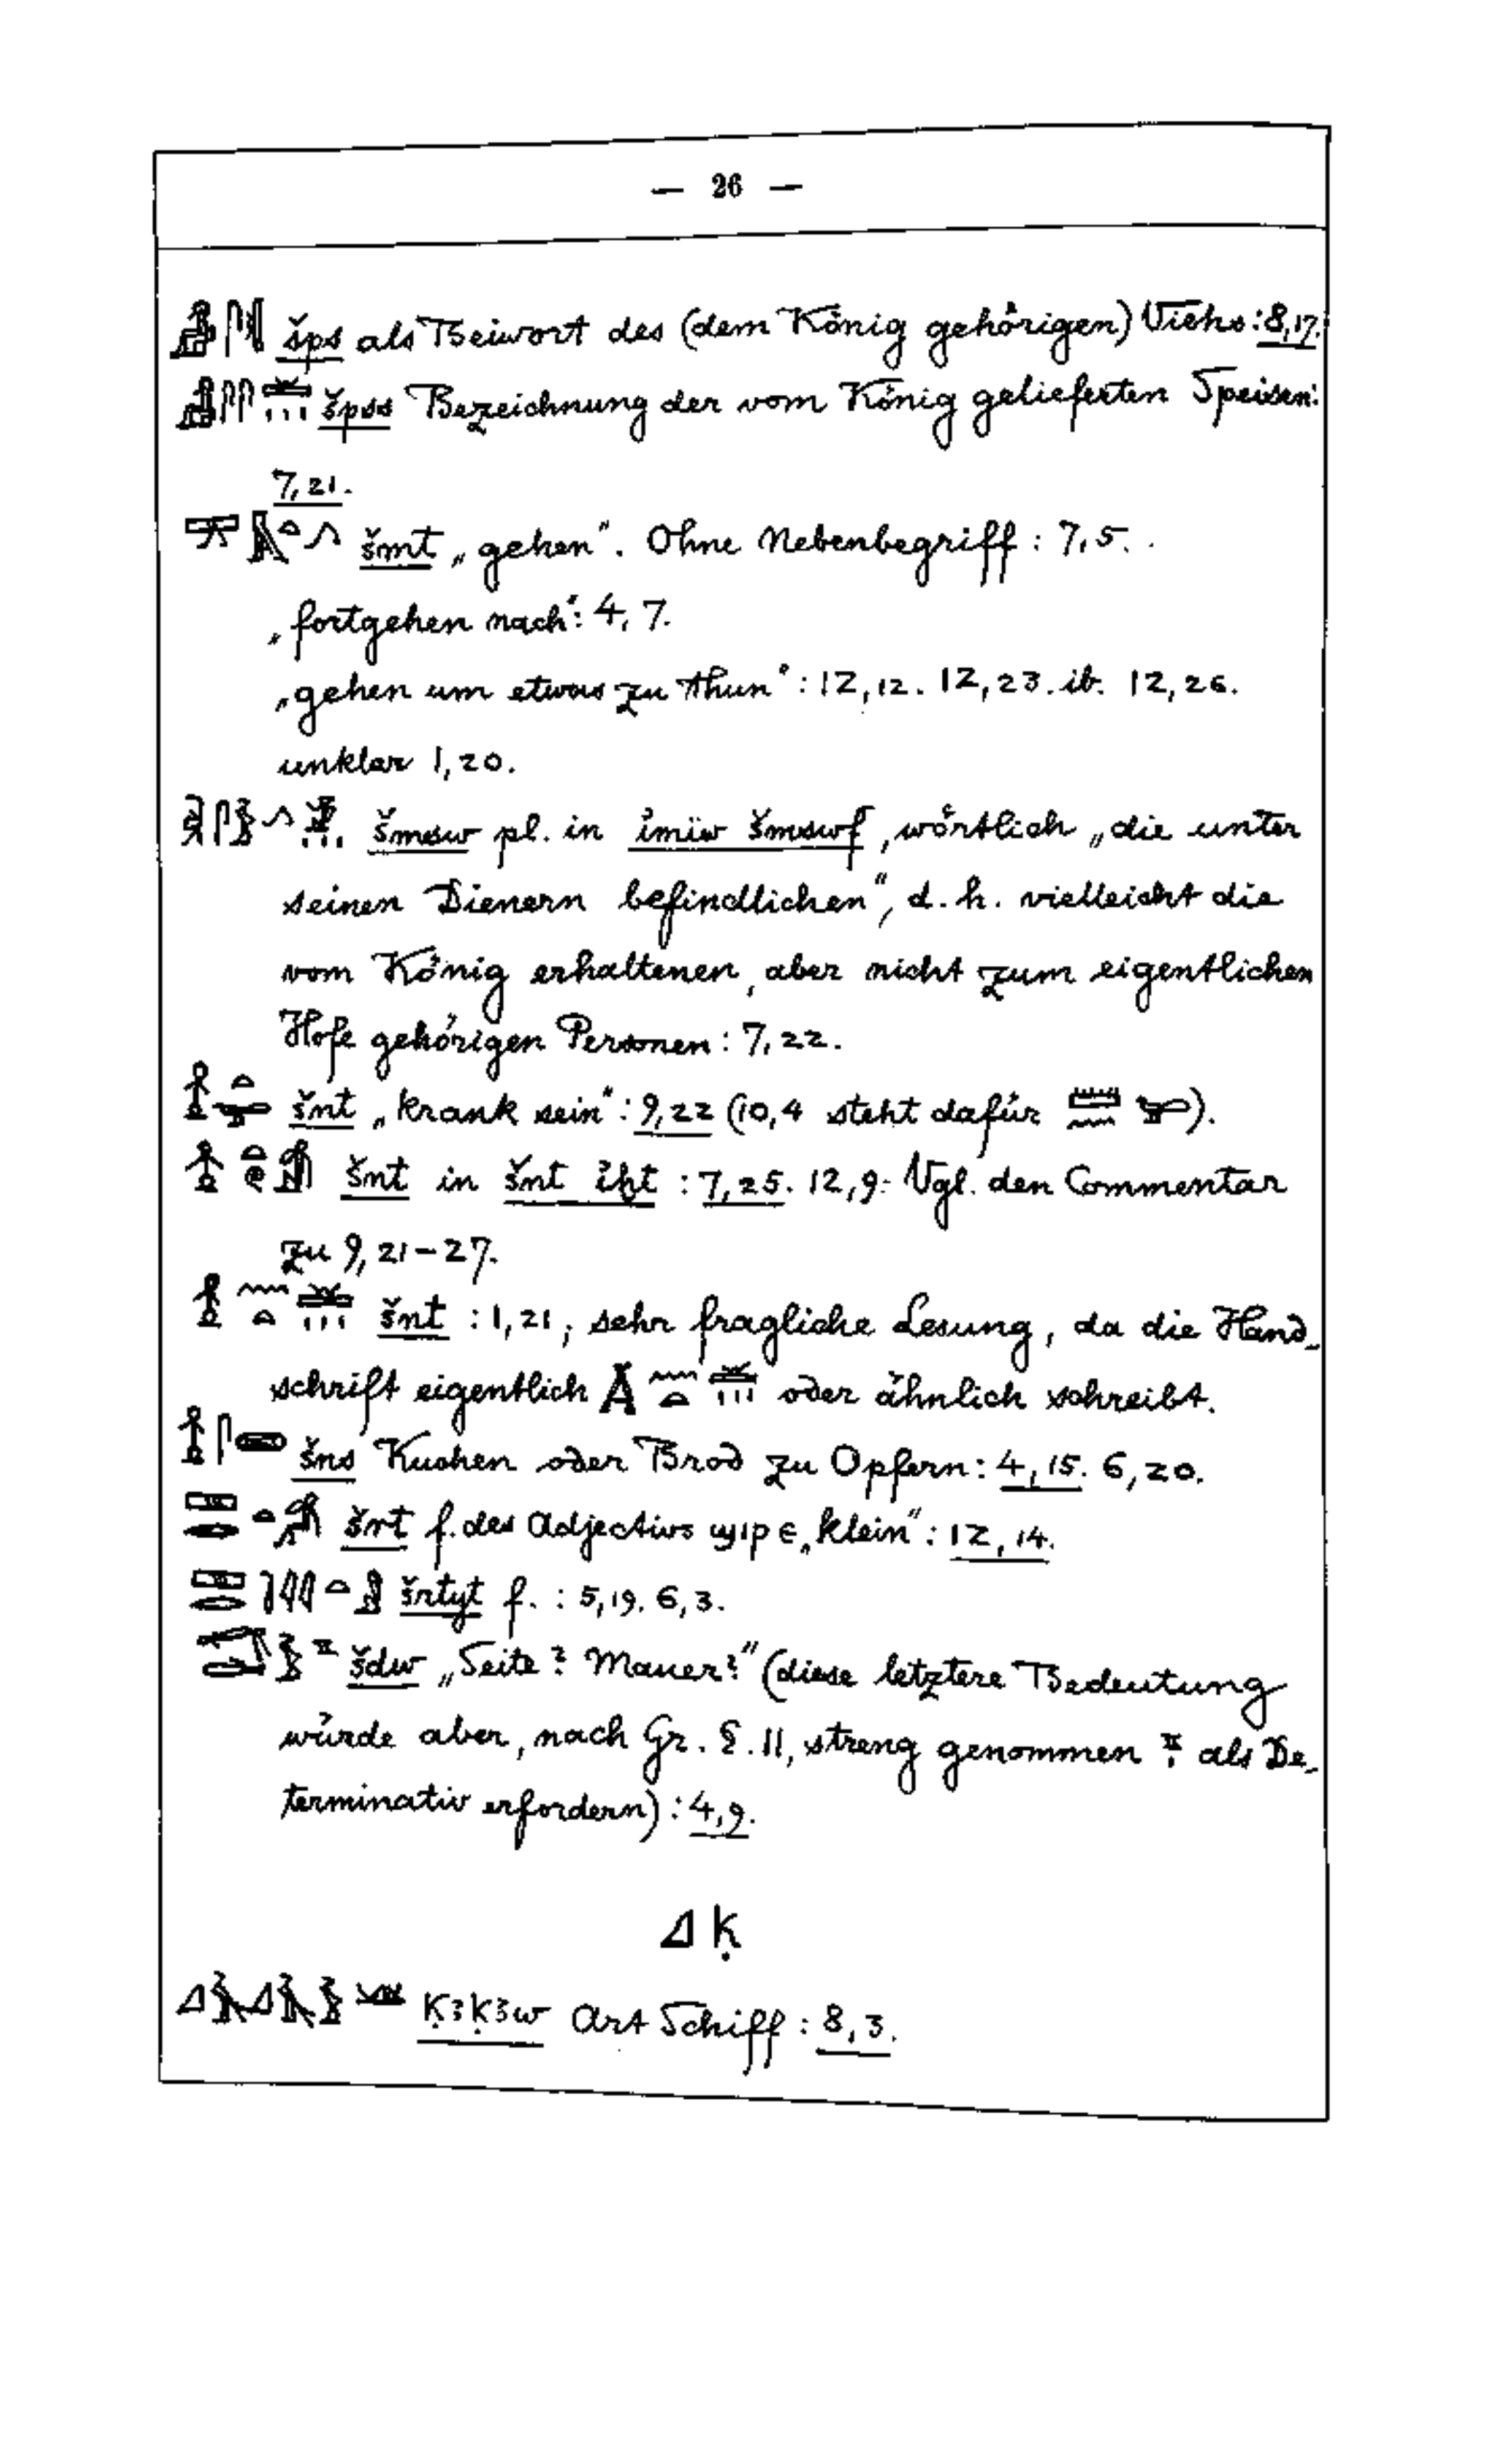 — 26 —
šps als Beiwort des (dem König gehörigen) Viehs: 8,17.
špss Bezeichnung der vom König gelieferten Speisen:
7,21.
šmt „gehen“. Ohne Nebenbegriff: 7,5.
„fortgehen nach“: 4,7.
„gehen um etwas zu thun“: 12,12. 12,23. ib. 12,26.
unklar 1,20.
šmsw pl. in imïw šmswf, wörtlich „die unter
seinen Dienern befindlichen“, d. h. vielleicht die
vom König erhaltenen, aber nicht zum eigentlichen
Hofe gehörigen Personen: 7,22.
šnt „krank sein“: 9,22 (10,4 steht dafür).
šnt in šnt iḫt: 7,25. 12,9. Vgl. den Commentar
zu 9,21-27.
šnt: 1,21; sehr fragliche Lesung, da die Hand-
schrift eigentlich oder ähnlich schreibt.
šns Kuchen oder Brod zu Opfern: 4,15. 6,20.
šrt f. des Adjectivs ϣιρε „klein“: 12,14.
šrtyt f.: 5,19. 6,3.
šdw „Seite? Mauer?“ (diese letztere Bedeutung
würde aber, nach Gr. §. 11, streng genommen als De-
terminativ erfordern): 4,9.
𓈎 ḳ
ḳꜣḳꜣw Art Schiff: 8,3.